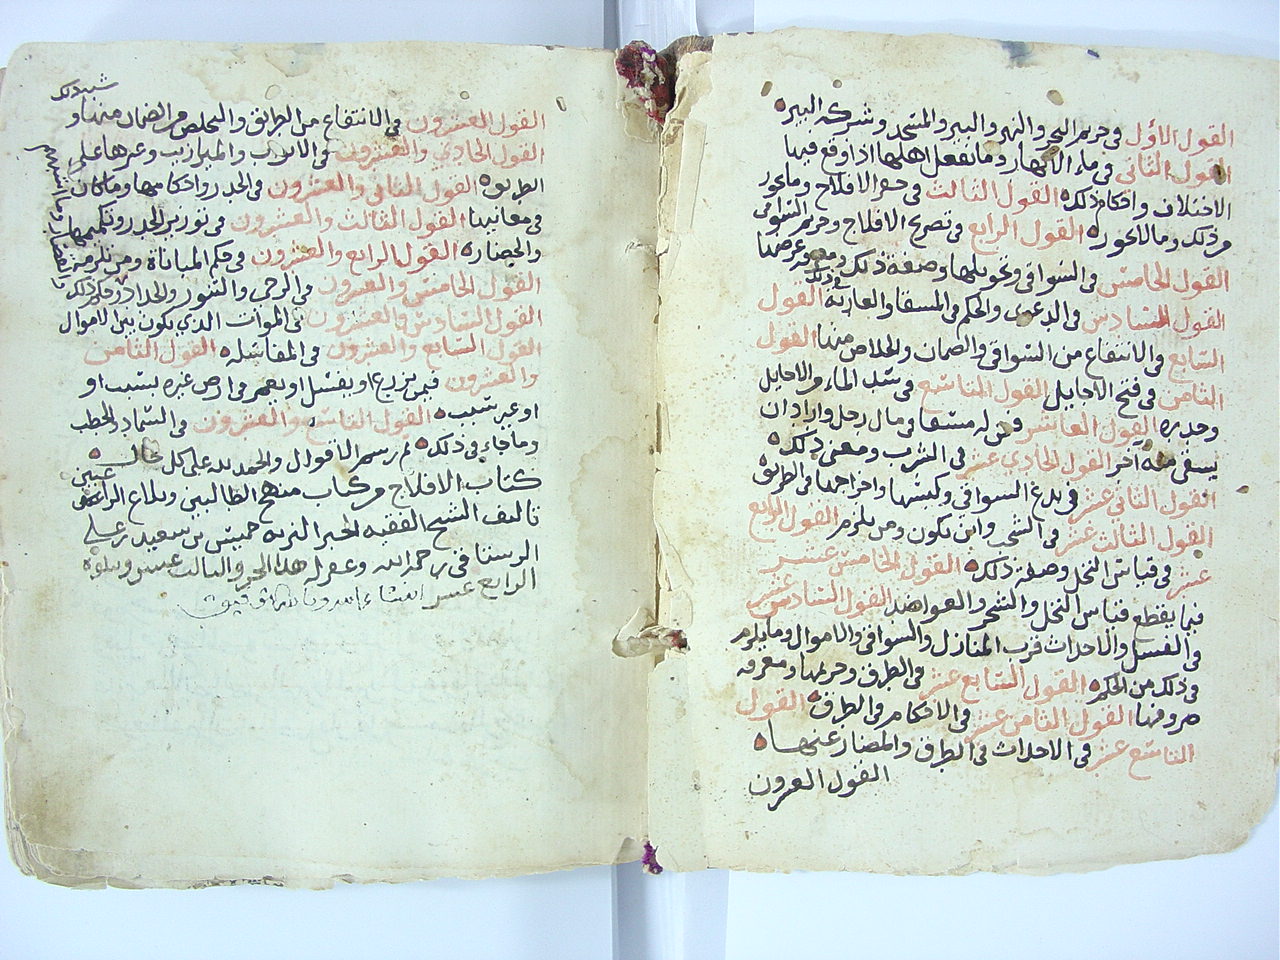 القول الأول في حريم البحر والنهر والبير والمسجد وشركة البير
القول الثاني في ماء الانهار وما يفعل اهلها اذا وقع فيها
الاختلاف واحكام ذلك القول الثالث في حفر الافلاج وما يجوز
من ذلك وما لا يجوز القول الرابع في تصريج الافلاج وحريم السواقي
القول الخامس في السواقي وتحويلها وصفة ذلك وعرضها
القول السادس في الدعوى والحكم في المسقا والعارية القول
السابع والانتفاع من السواقي والضمان والخلاص منها القول
الثامن في فتح الاجايل القول التاسع في سد الماء من الاجايل
وحدره القول العاشر فمن له مسقا في مال رجل واراد ان
يسقي منه آخر القول الحادي عشر في الشرب ومعنى ذلك
القول الثاني عشر في بدع السواقي وكبسها واخراجها في الطريق
القول الثالث عشر في الشحب واين تكون ومن يلزم القول الرابع
عشر في قياس النخل وصفة ذلك القول الخامس عشر
فيما يقطع قياس النخل والشجر والعواضد القول السادس عشر
في الفسل والاحداث قرب المنازل والسواقي والاموال وما يلزم
في ذلك من الحكم القول السابع عشر في الطرق وحريمها ومعرفة
صروفها القول الثامن عشر في الاحكام في الطرق القول
التاسع عشر في الاحداث في الطرق والمضار عنها
القول العشرون
شبه ذلك
القول العشرون في الانتفاع من الطريق والتخلص من الضمان منها و
القول الحادي والعشرون في الابواب والميازيب وغيرها على
الطريق القول الثاني والعشرون في الجدر واحكامها وما كان
في معانيها القول الثالث والعشرون في توزين الجدر وتكميمها
والحضار القول الرابع والعشرون في حكم المباناة ومن تلزمه
القول الخامس والعشرون في الرحى والتنور والحداد وحكم ذلك
القول السادس والعشرون في الموات الذي يكون بين الاموال
القول السابع والعشرون في المفاسلة القول الثامن
والعشرون فيمن يزرع او يفسل او يعمر في ارض غيره بسبب او
او غير سبب القول التاسع والعشرون في السماد والحطب
وما جاء في ذلك تم رسم الاقوال والحمد لله على كل حال
كتاب الافلاج من كتاب منهج الطالبين وبلاغ الراغبين
تاليف الشيخ الفقيه الحبر النزيه خميس بن سعيد بن علي
الرستاقي رحمه الله وغفر له هذا الجزو الثالث عشر ويتلوه
الرابع عشر انشاء الله